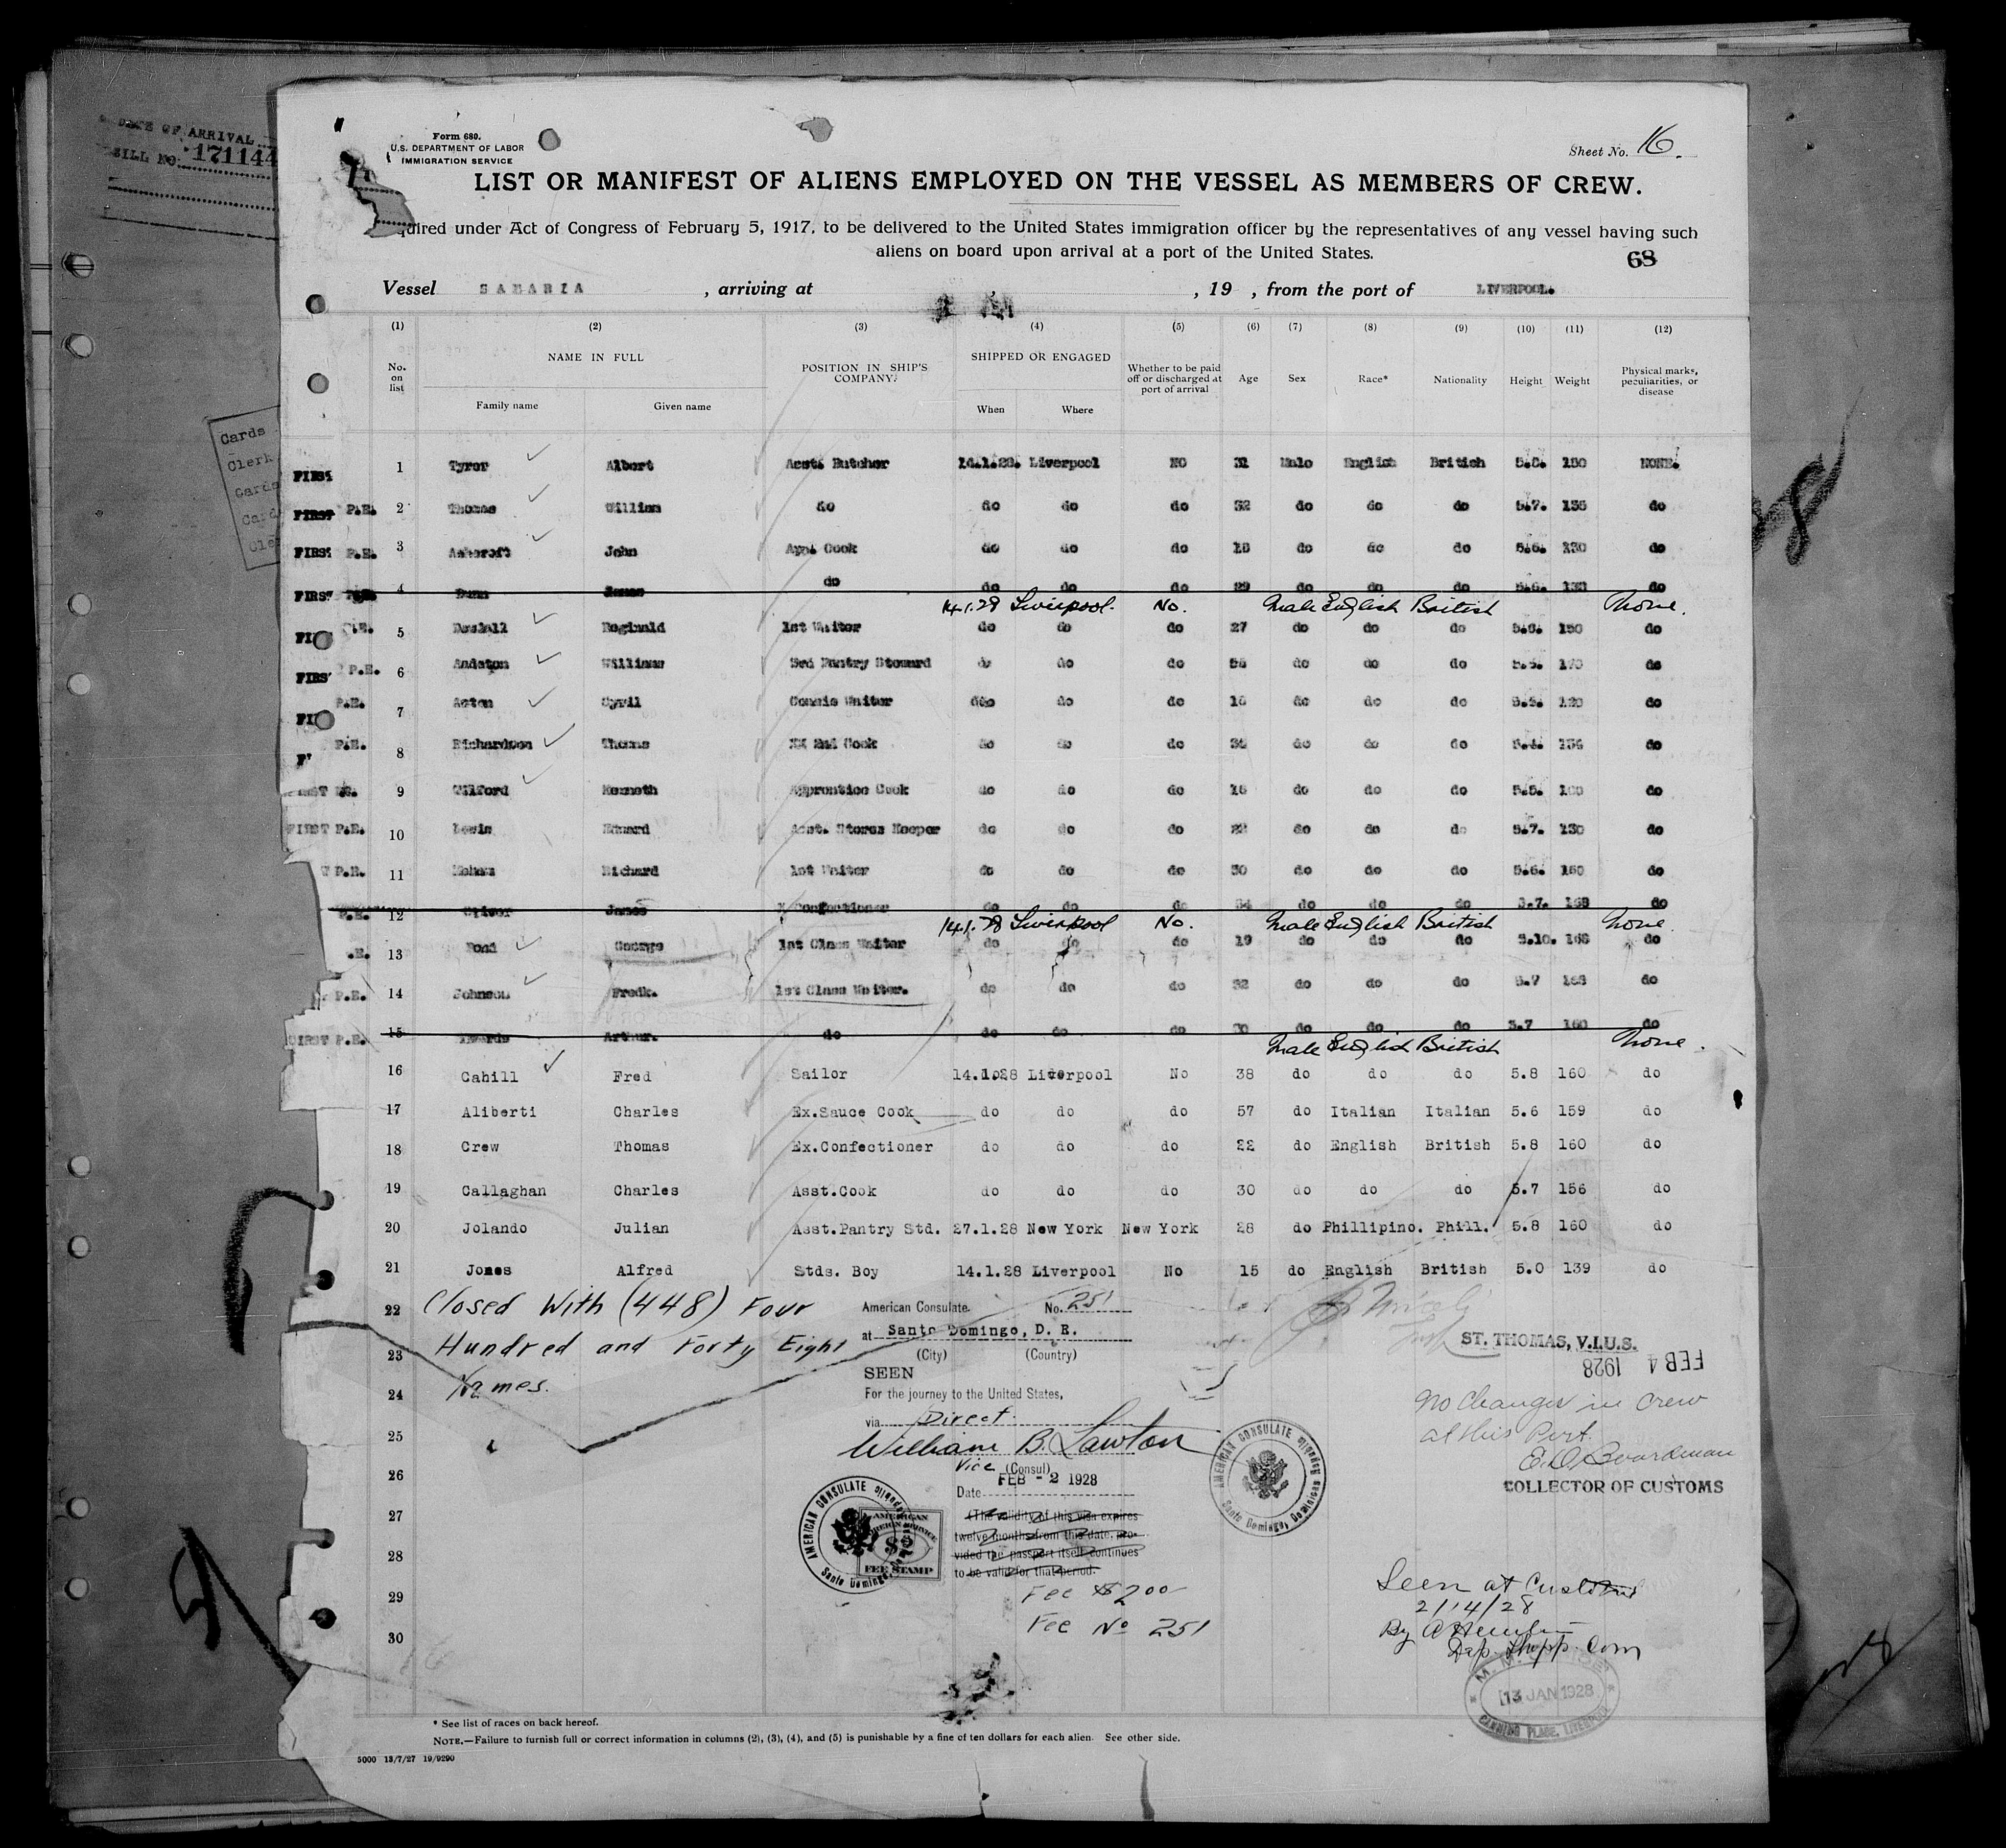 DATE OF ARRIVAL
BILL NO. 171144
Cards
Clerk
Cards
Card
Cle
Form 680.
U.S. DEPARTMENT OF LABOR
IMMIGRATION SERVICE
Sheet No. 16.
LIST OR MANIFEST OF ALIENS EMPLOYED ON THE VESSEL AS MEMBERS OF CREW.
quired under Act of Congress of February 5, 1917, to be delivered to the United States immigration officer by the representatives of any vessel having such
aliens on board upon arrival at a port of the United States.
68
Vessel SAMARIA , arriving at , 19 , from the port of LIVERPOOL.
(1) (2) (3) (4) (5) (6) (7) (8) (9) (10) (11) (12)
No. on list NAME IN FULL POSITION IN SHIP'S COMPANY. SHIPPED OR ENGAGED Whether to be paid off or discharged at port of arrival Age Sex Race* Nationality Height Weight Physical marks, peculiarities, or disease
Family name Given name When Where
FIRST 1 Tyror Albert Asst. Butcher 14.1.28. Liverpool NO 31 Male English British 5.8. 150 NONE.
FIRST P.E. 2 Thomas William do do do do 32 do do do 5.7. 136 do
FIRST P.E. 3 Ashcroft John App. Cook do do do 18 do do do 5.6. 130 do
FIRST 4 Dunn James do do do do 29 do do do 5.6. 138 do
14.1.28 Liverpool. No. Male English British None.
P.E. 5 Reginald 1st Waiter do do do 27 do do do 5.6. 150 do
FIRS P.E. 6 William 3rd Pantry Steward do do do do do do 170 do
P.E. 7 Acton Cyril Commis Waiter do do do 16 do do do 5.5. 120 do
P.E. 8 Richardson Thomas 2nd Cook do do do do do do do
9 Wilford Kenneth Apprentice Cook do do do 16 do do do 5.5. do
FIRST P.E. 10 Lewis Edward Asst. Stores Keeper do do do 22 do do do 5.7. 130 do
P.E. 11 Richard 1st Waiter do do do 30 do do do 5.6. 150 do
P.E. 12 Oliver James X Confectioner do do do 34 do do do 5.7. 168 do
14.1.28 Liverpool No. Male English British None.
.E. 13 Pond George 1st Class Waiter do do do 19 do do do 5.10. 168 do
P.E. 14 Johnson Fredk. 1st Class Waiter. do do do 32 do do do 5.7 168 do
FIRST P.E. 15 Edwards Arthur. do do do do 30 do do do 5.7 160 do
Male English British None.
16 Cahill Fred Sailor 14.1.28 Liverpool No 38 do do do 5.8 160 do
17 Aliberti Charles Ex.Sauce Cook do do do 57 do Italian Italian 5.6 159 do
18 Crew Thomas Ex.Confectioner do do do 22 do English British 5.8 160 do
19 Callaghan Charles Asst.Cook do do do 30 do do do 5.7 156 do
20 Jolando Julian Asst.Pantry Std. 27.1.28 New York New York 28 do Phillipino. Phill. 5.8 160 do
21 Jones Alfred Stds. Boy 14.1.28 Liverpool No 15 do English British 5.0 139 do
22 Closed With (448) Four
23 Hundred and Forty Eight
24 Names.
25
26
27
28
29
30
American Consulate. No. 251
at Santo Domingo, D. R.
(City) (Country)
SEEN
For the journey to the United States,
via Direct.
William B. Lawton
Vice (Consul)
Date FEB - 2 1928
(The validity of this visa expires
twelve months from this date, pro-
vided the passport itself continues
to be valid for that period.
Fee $2.00
Fee No 251
AMERICAN CONSULATE
Santo Domingo
AMERICAN FOREIGN SERVICE
$2
FEE STAMP
AMERICAN CONSULATE
Santo Domingo, Dominican Republic
ST. THOMAS, V.I.U.S.
FEB 4 1928
No Changes in Crew
at this Port.
E. O. Boardman
COLLECTOR OF CUSTOMS
Seen at
2/14/28
By
Dep. Shipp. Com
13 JAN 1928
CANNING PLACE, LIVERPOOL
* See list of races on back hereof.
NOTE.—Failure to furnish full or correct information in columns (2), (3), (4), and (5) is punishable by a fine of ten dollars for each alien. See other side.
5000 13/7/27 19/9290